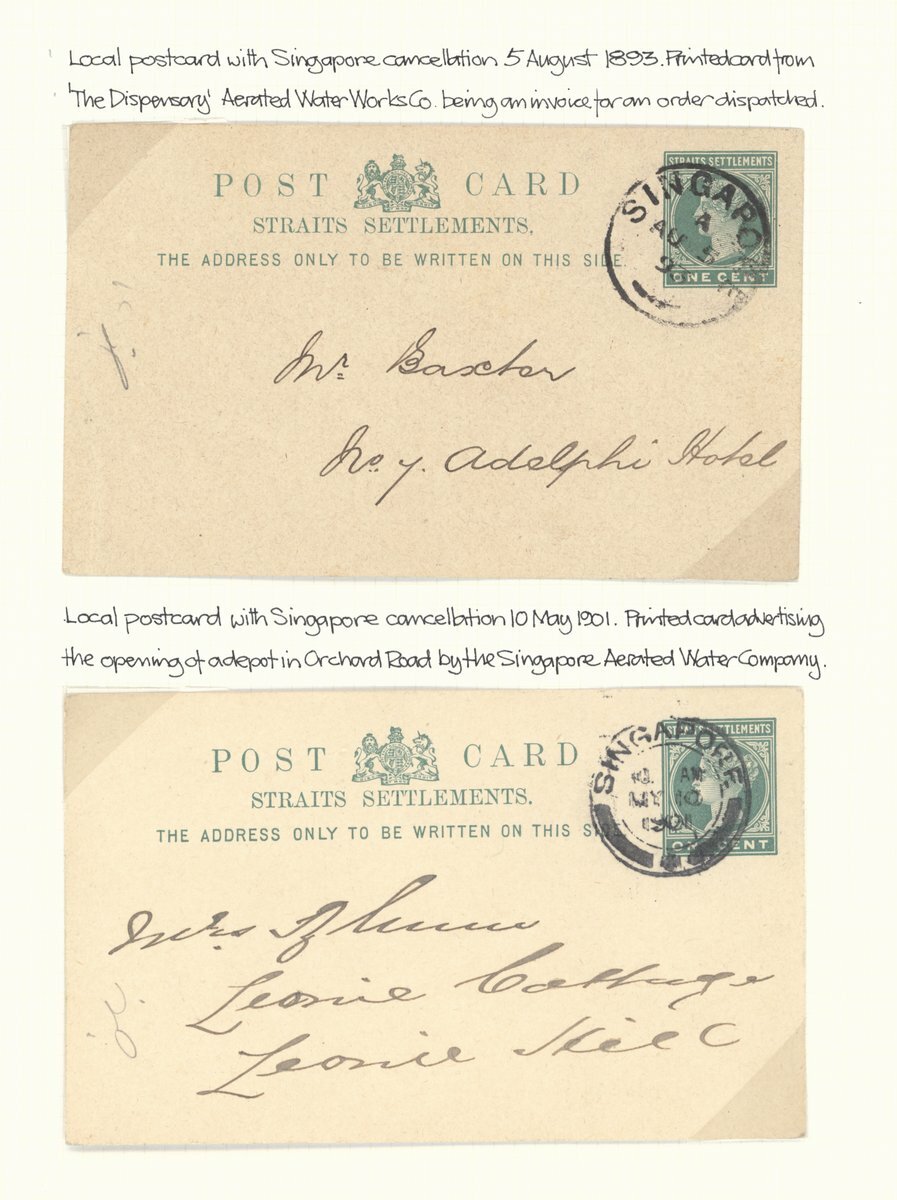 Local postcard with Singapore cancellation 5 August 1893. Printed card from
'The Dispensary' Aerated Water Works Co. being an invoice for an order dispatched.
POST CARD
STRAITS SETTLEMENTS.
THE ADDRESS ONLY TO BE WRITTEN ON THIS SIDE.
STRAITS SETTLEMENTS
ONE CENT
SINGAPO
A
AU 5
9
Mr. Baxter
No. 7. Adelphi Hotel
Local postcard with Singapore cancellation 10 May 1901. Printed card advertising
the opening of a depot in Orchard Road by the Singapore Aerated Water Company.
POST CARD
STRAITS SETTLEMENTS.
THE ADDRESS ONLY TO BE WRITTEN ON THIS SIDE.
STRAITS SETTLEMENTS
ONE CENT
SINGAPORE
AM
MY 10
1901
Mrs
Leonie Cottage
Leonie Hill